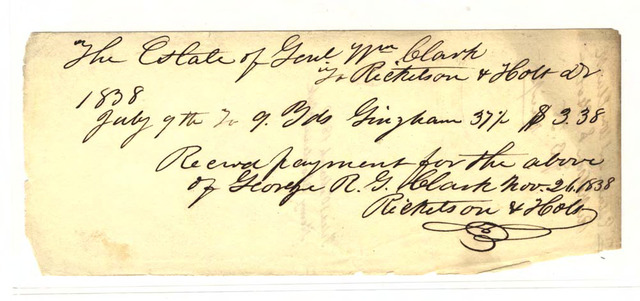 The Estate of Genl. Wm. Clark
To Ricketson & Holt Dr
1838
July 9th To 9. Yds Gingham 37½ $3.38
Recevd payment for the above
of George R. G. Clark Nov. 26. 1838
Ricketson & Holt